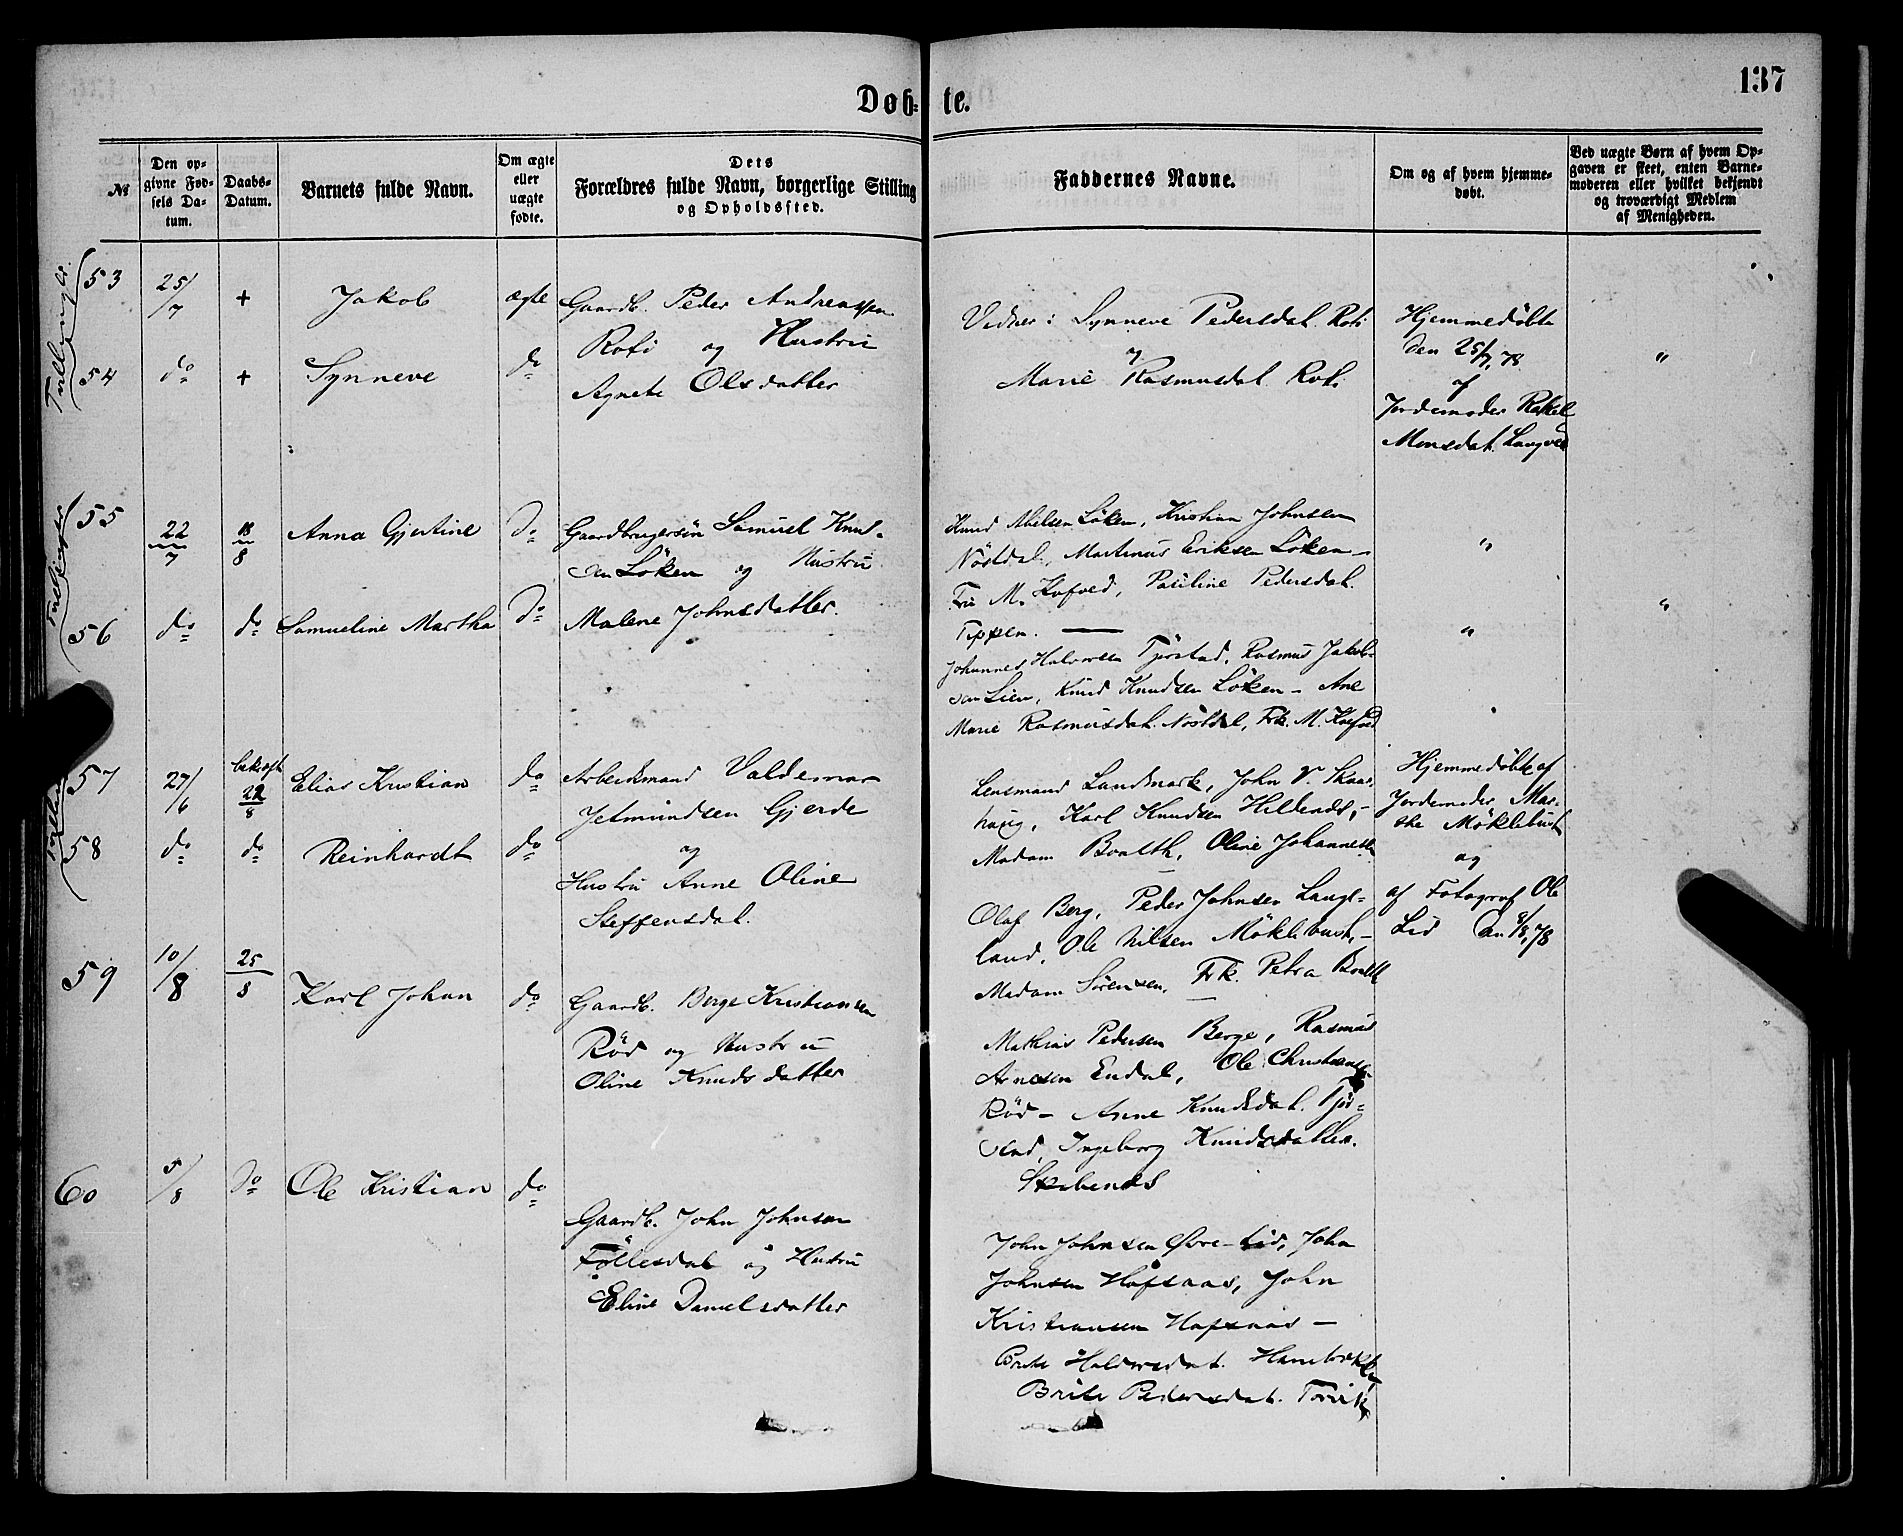 137
Døb- te.
№
Den opgivne Fødsels Datum.
Daabs-Datum.
Barnets fulde Navn.
Om ægte eller uægte fødte.
Dets Forældres fulde Navn, borgerlige Stilling og Opholdssted.
Faddernes Navne.
Om og af hvem hjemmedøbt.
Ved uægte Børn af hvem Opgaven er skeet, enten Barnemoderen eller hvilket bekjendt og troværdigt Medlem af Menigheden.
Tvillinger
53 25/7 + Jakob ægte Gaardb. Peder Andreassen
Roti og Hustru
54 do + Synneve do Agnete Olsdatter
Vidner: Synneve Pedersdat. Roti
og
Marie Rasmusdat. Roti
Hjemmedøbte
den 25/7, 78
af
Jordemoder Rakel
Monsdat. Langved
"
Tvillinger
55 22/7 18/8 Anna Gjertine do Gaardbrugersøn Samuel Knud-
sen Løken og Hustru
56 do do Samueline Martha do Malene Johnsdatter.
Knud Nielsen Løken, Kristian Johnsen
Nøstdal, Martinus Eriksen Løken –
Frk M. Kofoed, Pauline Pedersdat.
Teppen. —
Johannes Halvorsen Tjørstad, Rasmus Jakob-
sen Lien, Knud Knudsen Løken – Ane
Marie Rasmusdat. Nøstdal, Frk. M. Kofoed
"
"
"
57 27/6 bekræft 22/8 Elias Kristian do Arbeidsmand Valdemar
Jetmundsen Gjerde
58 do do Reinhardt do og
Hustru Anne Oline
Steffensdat.
Lensmand Landmark, John V. Skaar
haug, Karl Knudsen –
Madam Boalth, Oline Johannesen
Olaf Berg, Peder Johnsen Lange-
land, Ole Nilsen Møklebust, –
Madam Sørensen, Frk. Petra Boalth
Hjemmedøbt af
Jordemoder Mar-
the Møklebust
og
af Fotograf Ole
Lid den 8/8, 78
59 10/8 25/8 Karl Johan do Gaardb. Berge Kristiansen
Rød og Hustru
Oline Knudsdatter
Mathias Pedersen Berge, Rasmus
Arnesen Endal, Ole Christiansen
Rød – Anne Knudsdat. Tjør-
stad, Ingeborg Knudsdatter.
Skibenes
60 5/8 do Ole Kristian do
Gaardb. John Johnsen
Føllesdal og Hustru
Eline Danielsdatter
John Johnsen Øvre-Lid, John
Johnsen Hofsaas, John
Kristiansen Hofsaas –
Brite Halvorsdat.
Brite Pedersdat. Torvik